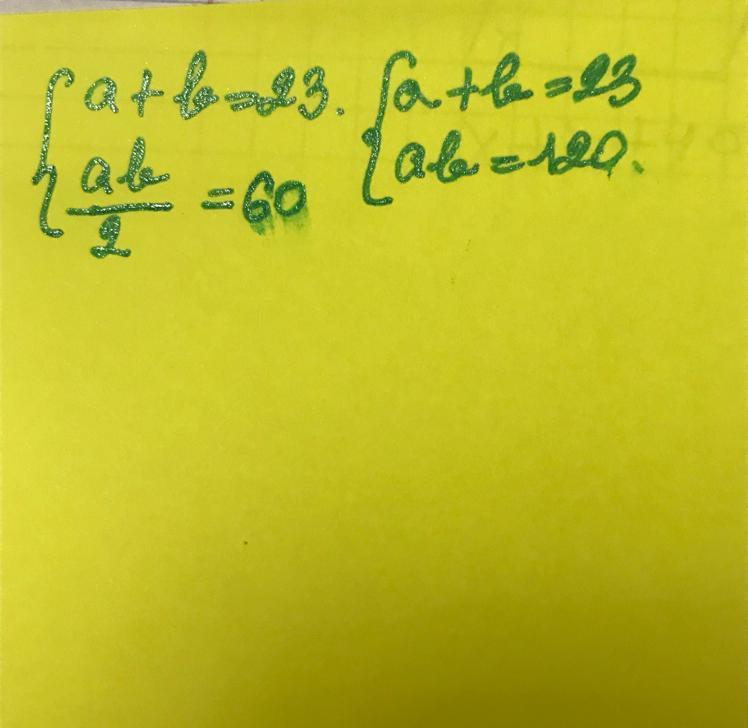 { a + b = 23.
ab/2 = 60
{ a + b = 23
ab = 120.